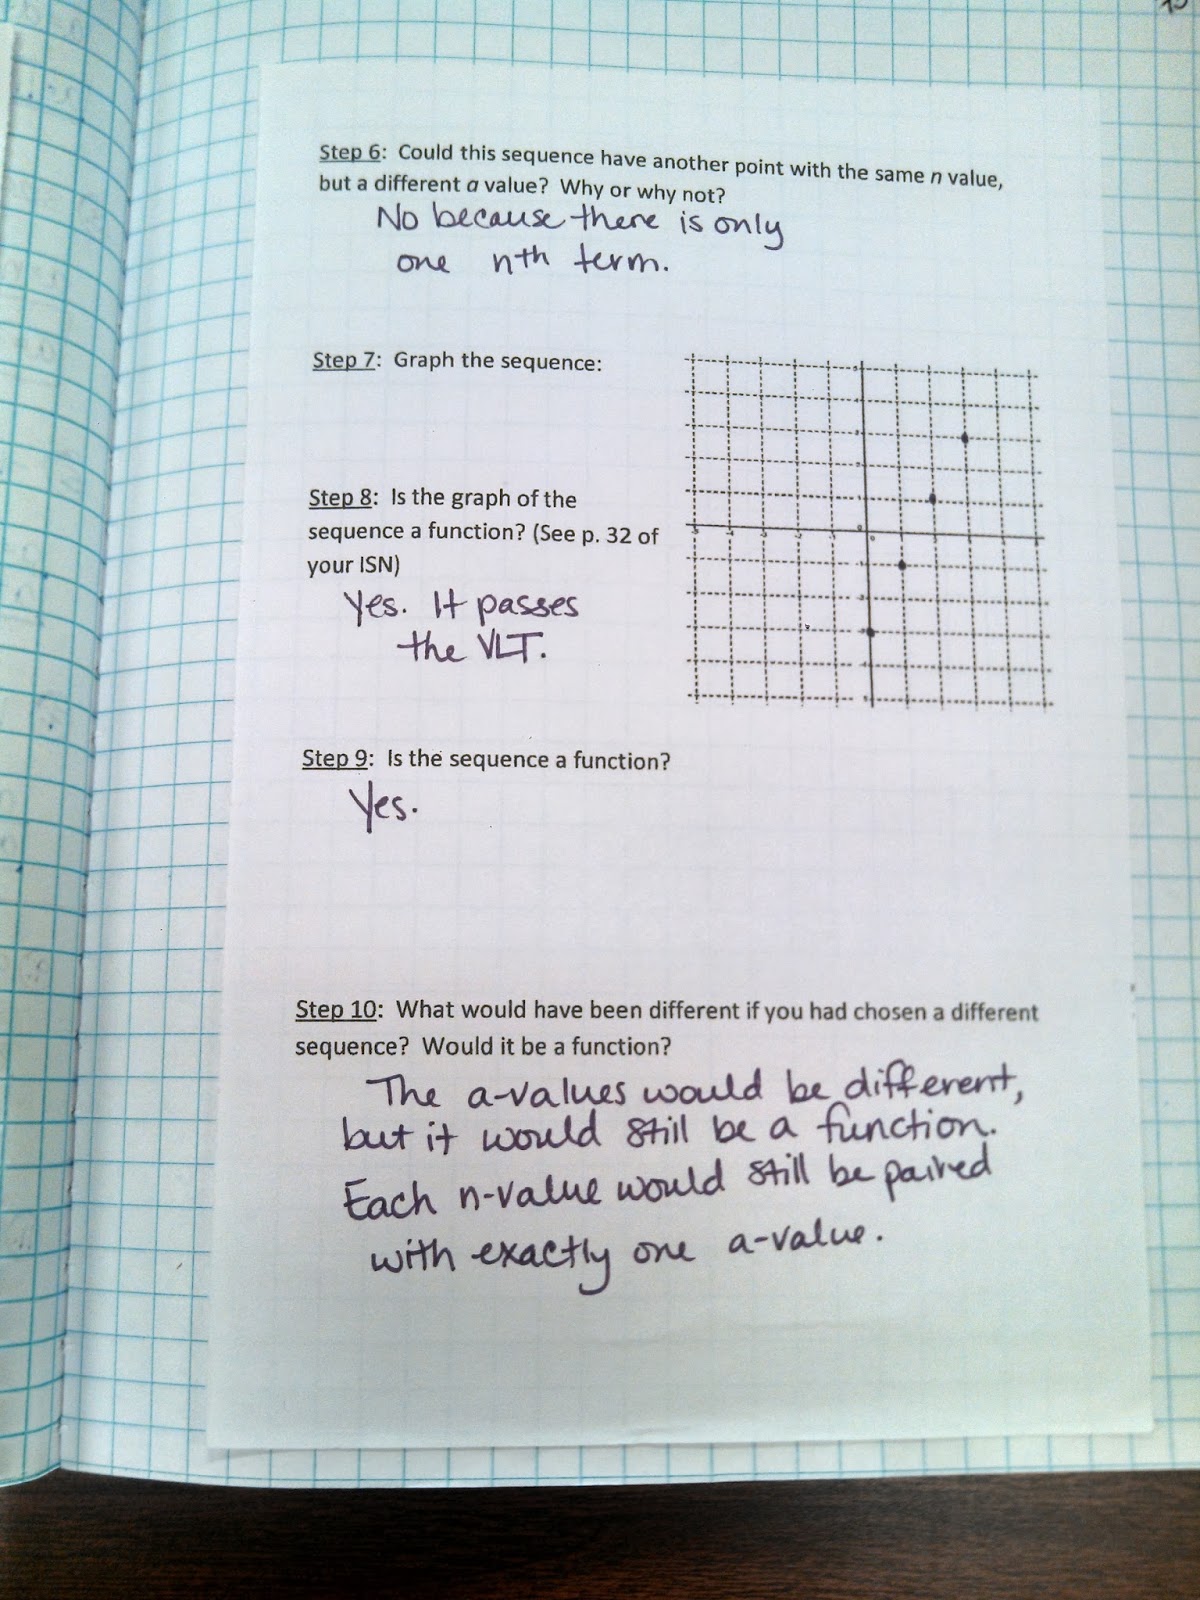 Step 6: Could this sequence have another point with the same n value,
but a different a value? Why or why not?
No because there is only
one nth term.
Step 7: Graph the sequence:
Step 8: Is the graph of the
sequence a function? (See p. 32 of
your ISN)
Yes. It passes
the VLT.
Step 9: Is the sequence a function?
Yes.
Step 10: What would have been different if you had chosen a different
sequence? Would it be a function?
The a-values would be different,
but it would still be a function.
Each n-value would still be paired
with exactly one a-value.